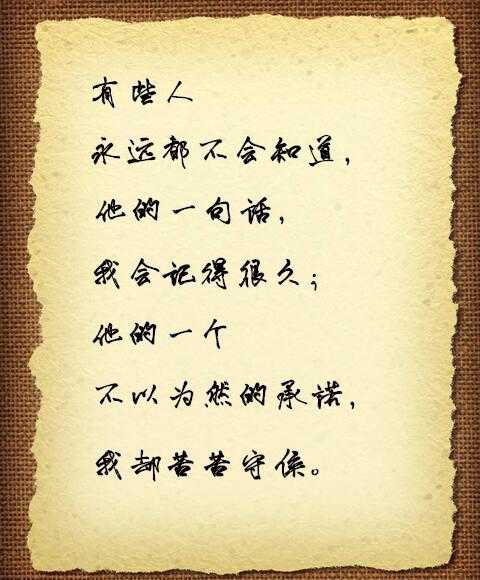 有些人
永远都不会知道，
他的一句话，
我会记得很久；
他的一个
不以为然的承诺，
我却苦苦守候。